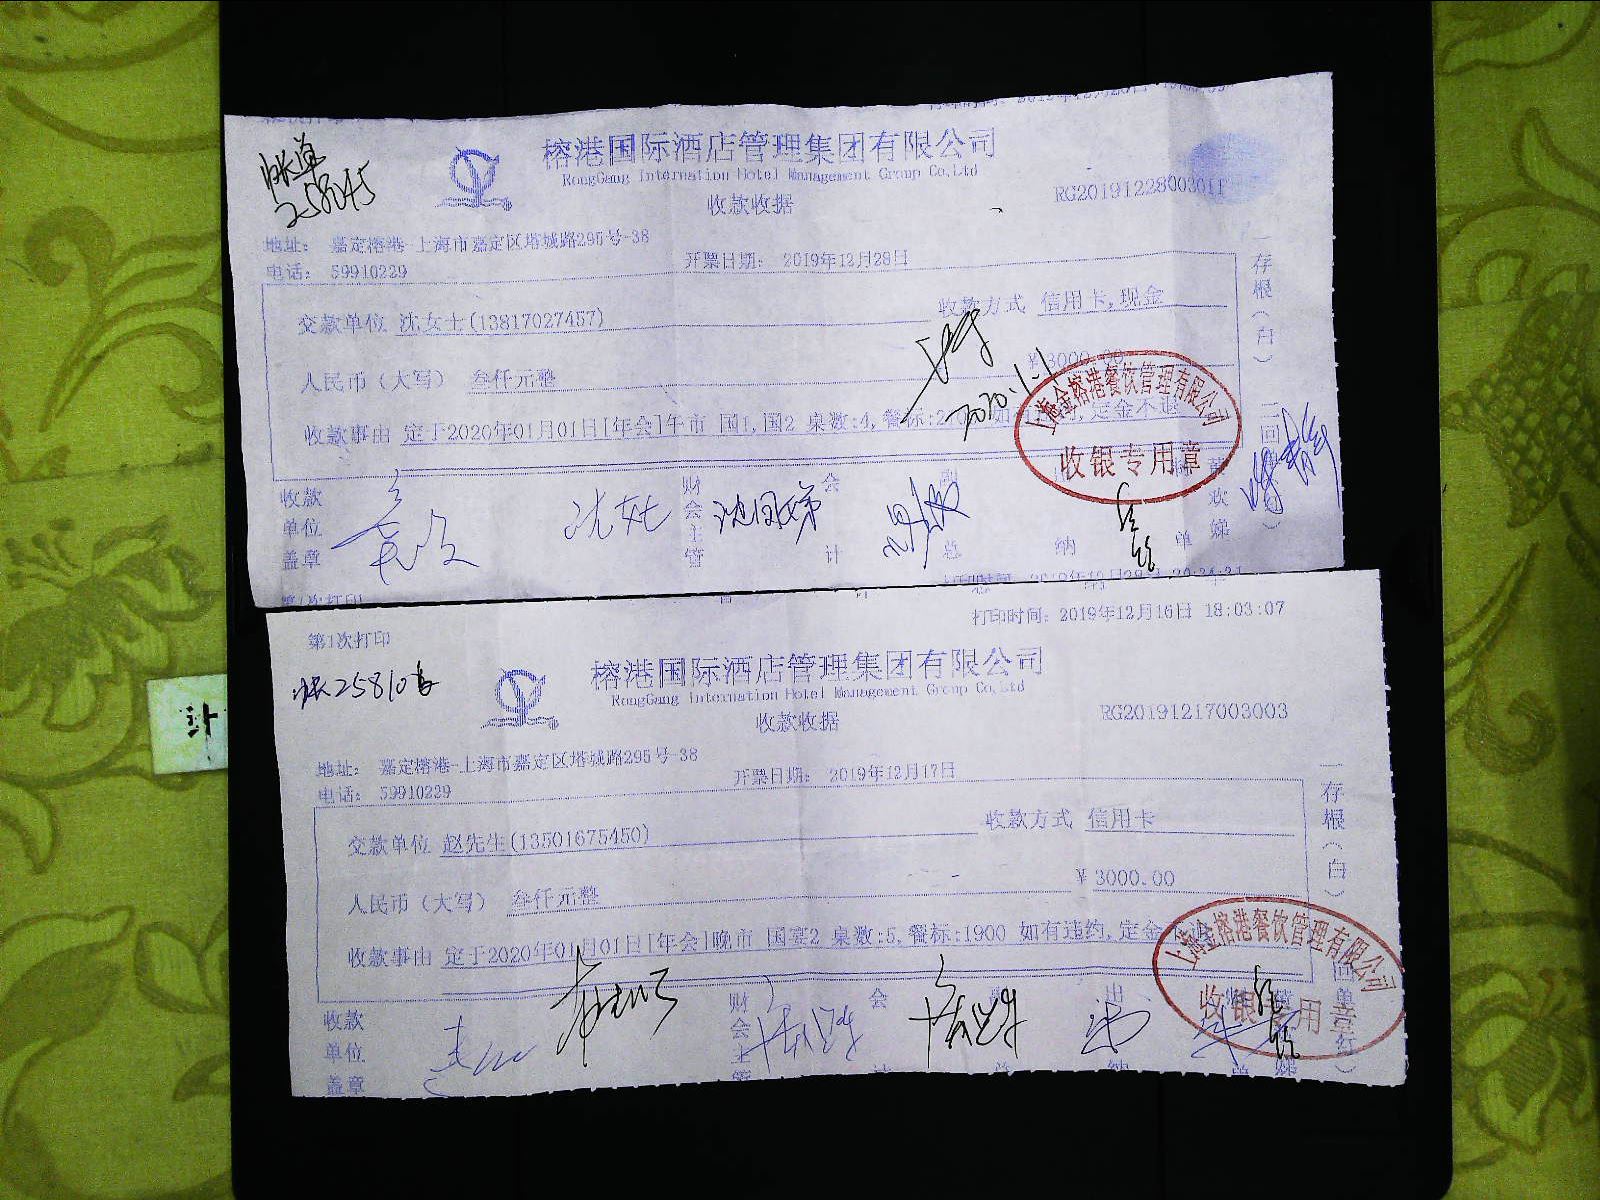 账单
258045
榕港国际酒店管理集团有限公司
RongGang Internation Hotel Management Group Co,Ltd
收款收据
RG20191228003011
地址： 嘉定榕港-上海市嘉定区塔城路295号-38
电话： 59910229
开票日期： 2019年12月28日
交款单位 沈女士(13817027457)
收款方式 信用卡,现金
人民币（大写） 叁仟元整
¥ 3000.00
2020.1.1
收款事由 定于2020年01月01日[年会]午市 国1,国2 桌数:4,餐标:
定金不退
上海金榕港餐饮管理有限公司
收银专用章
一存根（白）
二回
收款单位盖章
沈女士
财会主管
会计
总
纳
单
欢娣
打印时间：2019年12月16日 18:03:07
第1次打印
榕港国际酒店管理集团有限公司
RongGang Internation Hotel Management Group Co,Ltd
收款收据
RG20191217003003
地址： 嘉定榕港-上海市嘉定区塔城路295号-38
电话： 59910229
开票日期： 2019年12月17日
交款单位 赵先生(13501675450)
收款方式 信用卡
人民币（大写） 叁仟元整
¥ 3000.00
收款事由 定于2020年01月01日[年会]晚市 国宴2 桌数:5,餐标:1900 如有违约,定金
上海金榕港餐饮管理有限公司
收银专用章
一存根（白）
收款单位盖章
财会主管
会
出
计